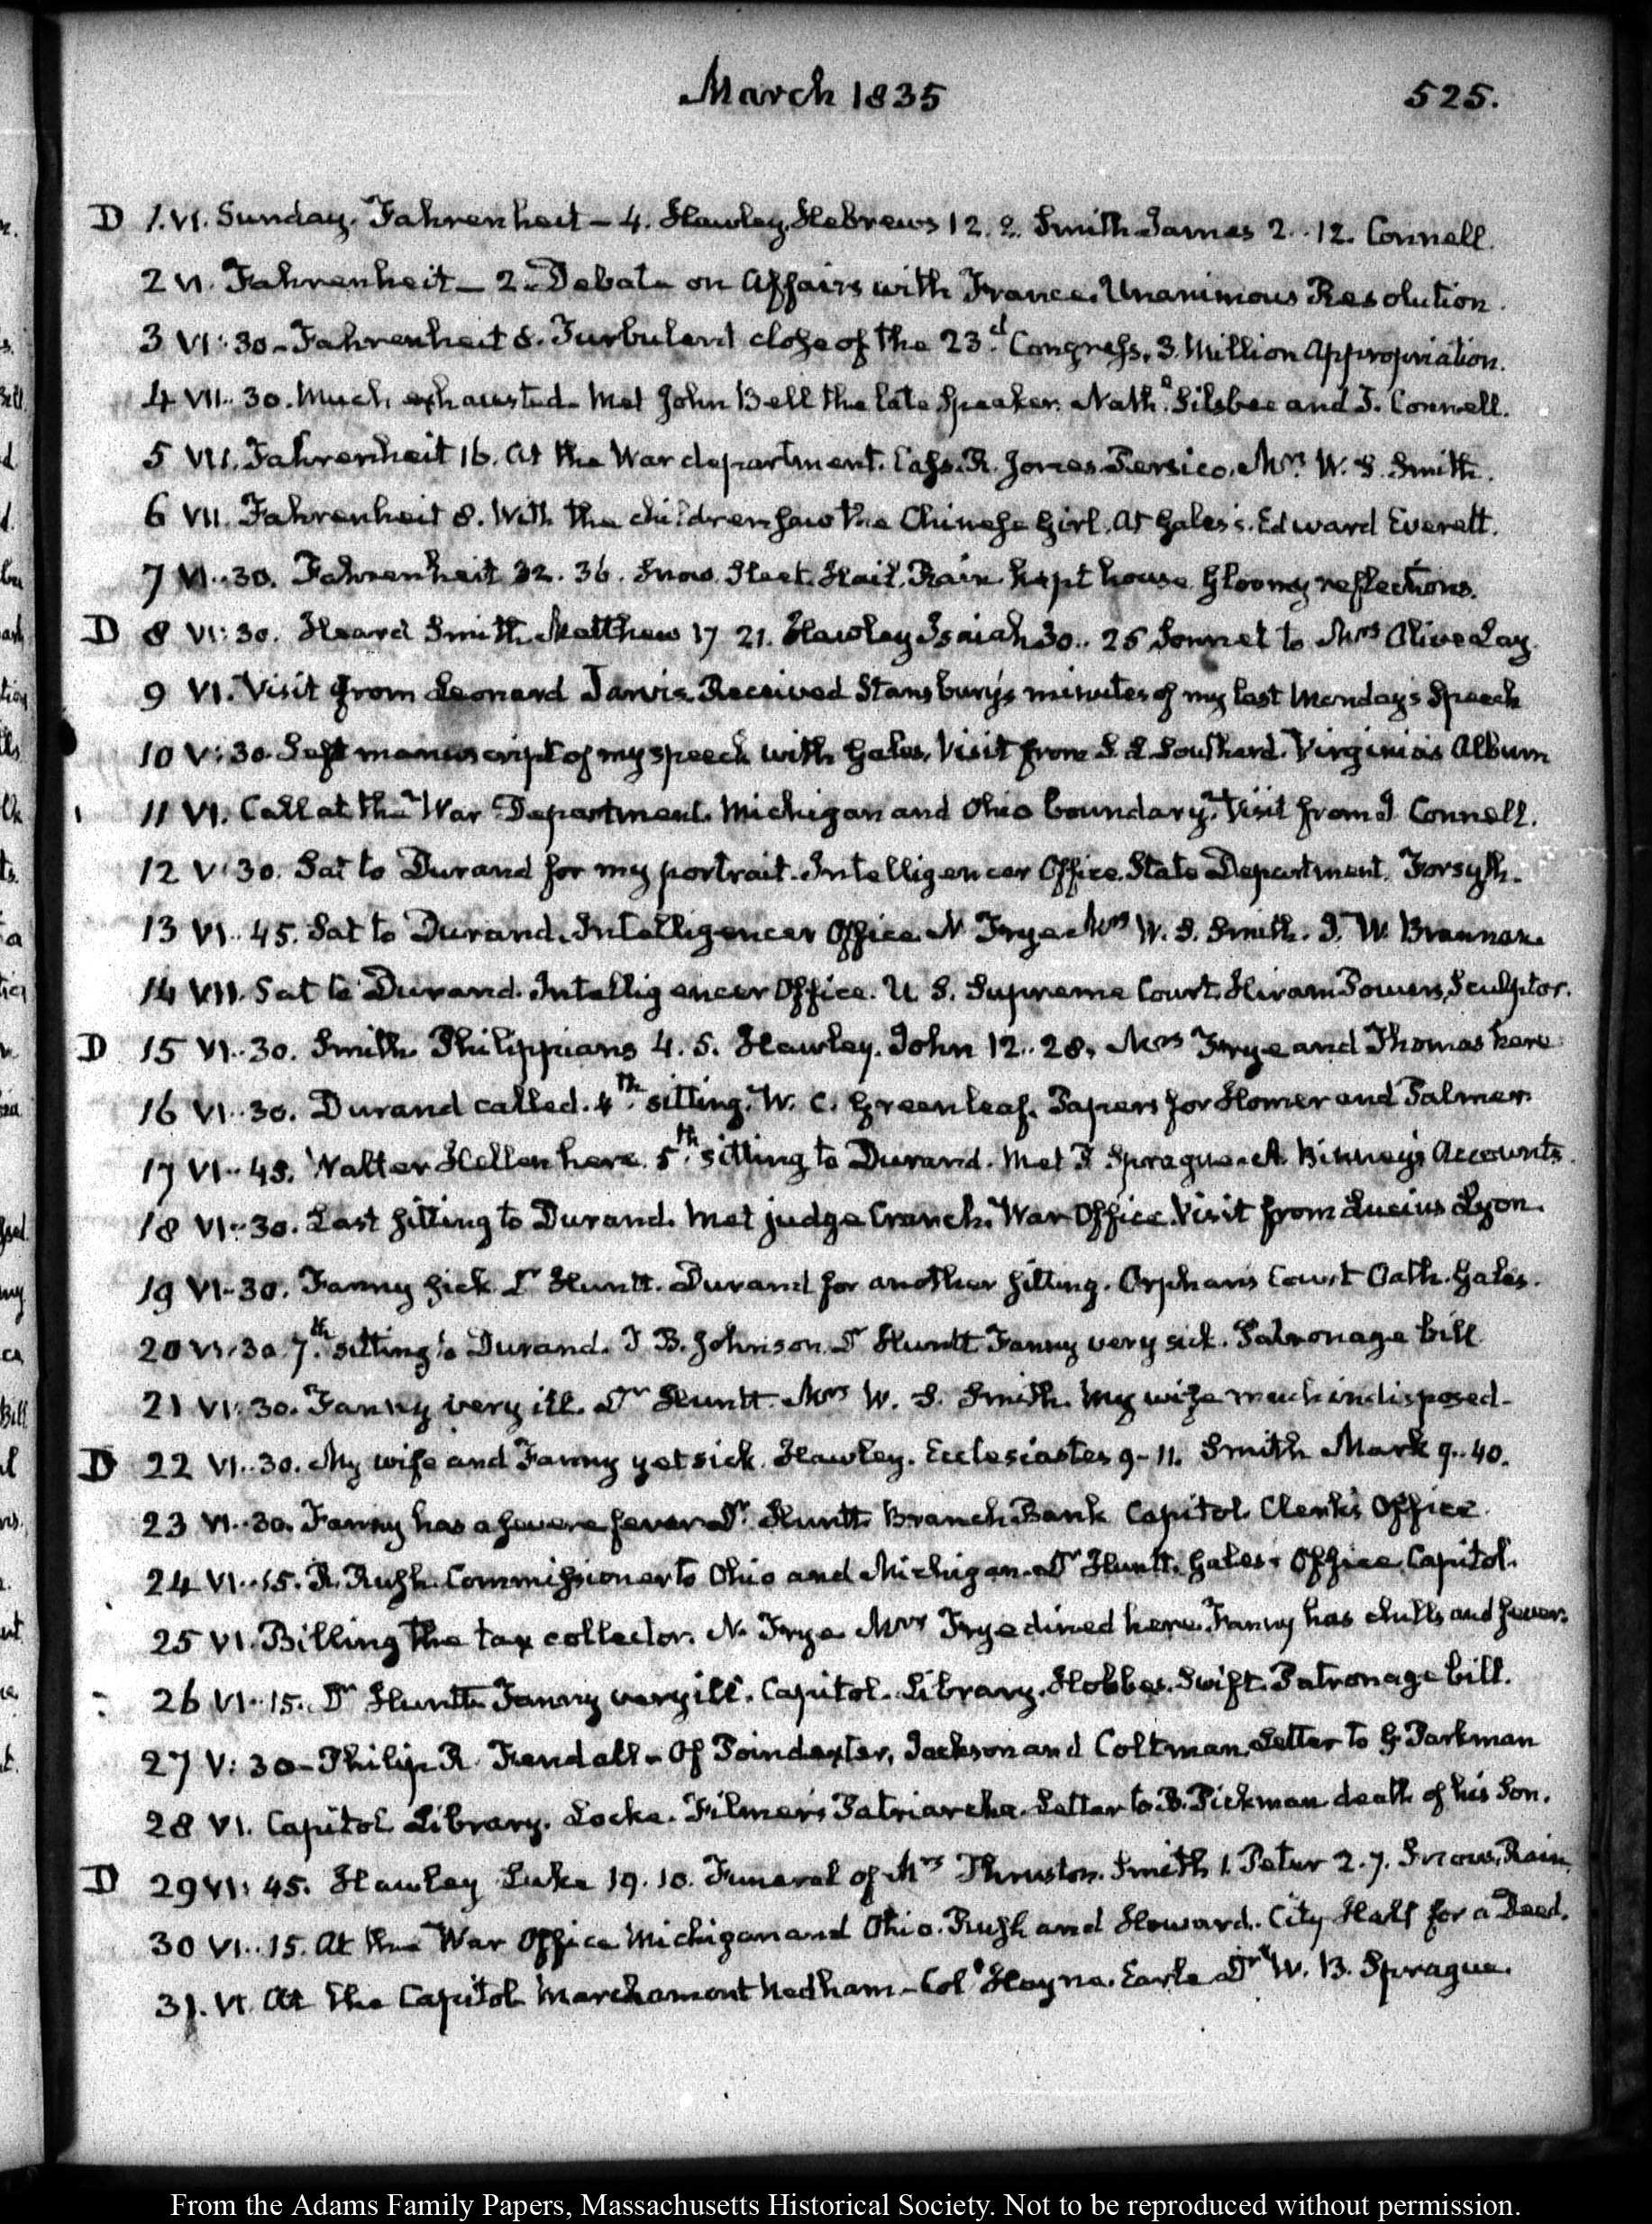 March 1835
525.
D 1. VI. Sunday. Fahrenheit – 4. Hawley, Hebrews 12. 2. Smith James 2..12. Connell.
2 VI. Fahrenheit – 2. Debate on Affairs with France. Unanimous Resolution.
3 VI:30. Fahrenheit 8. Turbulent close of the 23.d Congress, 3. Million Appropriation.
4 VII..30. Much exhausted. Met John Bell the late Speaker. Nath.l Silsbee and J. Connell.
5 VII. Fahrenheit 16. At the War department. Cass. R. Jones. Persico. Mrs W. S. Smith.
6 VII. Fahrenheit 8. With the children saw the Chinese Girl. At Gales's. Edward Everett.
7 VI..30. Fahrenheit 32. 36. Snow. Sleet. Hail. Rain. Kept house. Gloomy reflections.
D 8 VI:30. Heard Smith. Matthew 17 21. Hawley Isaiah 30..25 Sonnet to Mrs Olive Lay
9 VI. Visit from Leonard Jarvis. Received Stansbury's minutes of my last Monday's Speech
10 V:30. Left manuscript of my speech with Gales. Visit from S. L. Southard. Virginia's Album
11 VI. Call at the War Department. Michigan and Ohio boundary. Visit from J Connell.
12 V:30. Sat to Durand for my portrait. Intelligencer Office. State Department. Forsyth.
13 VI..45. Sat to Durand. Intelligencer Office. N Frye. Mrs W. S. Smith. J. W. Brannan.
14 VII. Sat to Durand. Intelligencer Office. U. S. Supreme Court. Hiram Powers, Sculptor.
D 15 VI..30. Smith. Philippians 4. 5. Hawley. John 12..28. Mrs Frye and Thomas here
16 VI..30. Durand called. 4.th sitting. W. C. Greenleaf. Papers for Homer and Palmer
17 VI..45. Walter Hellen here. 5.th sitting to Durand. Met P Sprague. A. Binney's Accounts.
18 VI..30. Last sitting to Durand. Met judge Cranch. War Office. Visit from Lucius Lyon.
19 VI-30. Fanny sick. Dr Huntt. Durand for another sitting. Orphan's Court Oath. Gales.
20 VI:30. 7.th sitting to Durand. J B. Johnson. Dr Huntt Fanny very sick. Patronage bill
21 VI:30. Fanny very ill. Dr Huntt. Mrs W. S. Smith. My wife much indisposed.
D 22 VI..30. My wife and Fanny yet sick. Hawley. Ecclesiastes 9-11. Smith Mark 9..40.
23 VI..30. Fanny has a severe fever. Dr. Huntt. Branch Bank Capitol. Clerk's Office.
24 VI..15. R. Rush. Commissioner to Ohio and Michigan. Dr Huntt. Gales's Office. Capitol.
25 VI. Billing the tax collector. N. Frye Mrs Frye dined here. Fanny has chills and fever.
26 VI..15. Dr Huntt Fanny very ill. Capitol. Library. Hobbes. Swift. Patronage bill.
27 V:30– Philip R. Fendall. Of Poindexter, Jackson and Coltman. Letter to G. Parkman
28 VI. Capitol Library. Locke. Filmer's Patriarcha. Letter to B. Pickman death of his Son.
D 29 VI: 45. Hawley Luke 19. 10. Funeral of Mrs Thruston. Smith 1. Peter 2. 7. Snow, Rain.
30 VI..15. At the War Office Michigan and Ohio. Rush and Howard. City Hall for a Deed.
31. VI. At the Capitol Marchamont Nedham – Col.o Hayne. Earle. Dr W. B. Sprague.
From the Adams Family Papers, Massachusetts Historical Society. Not to be reproduced without permission.